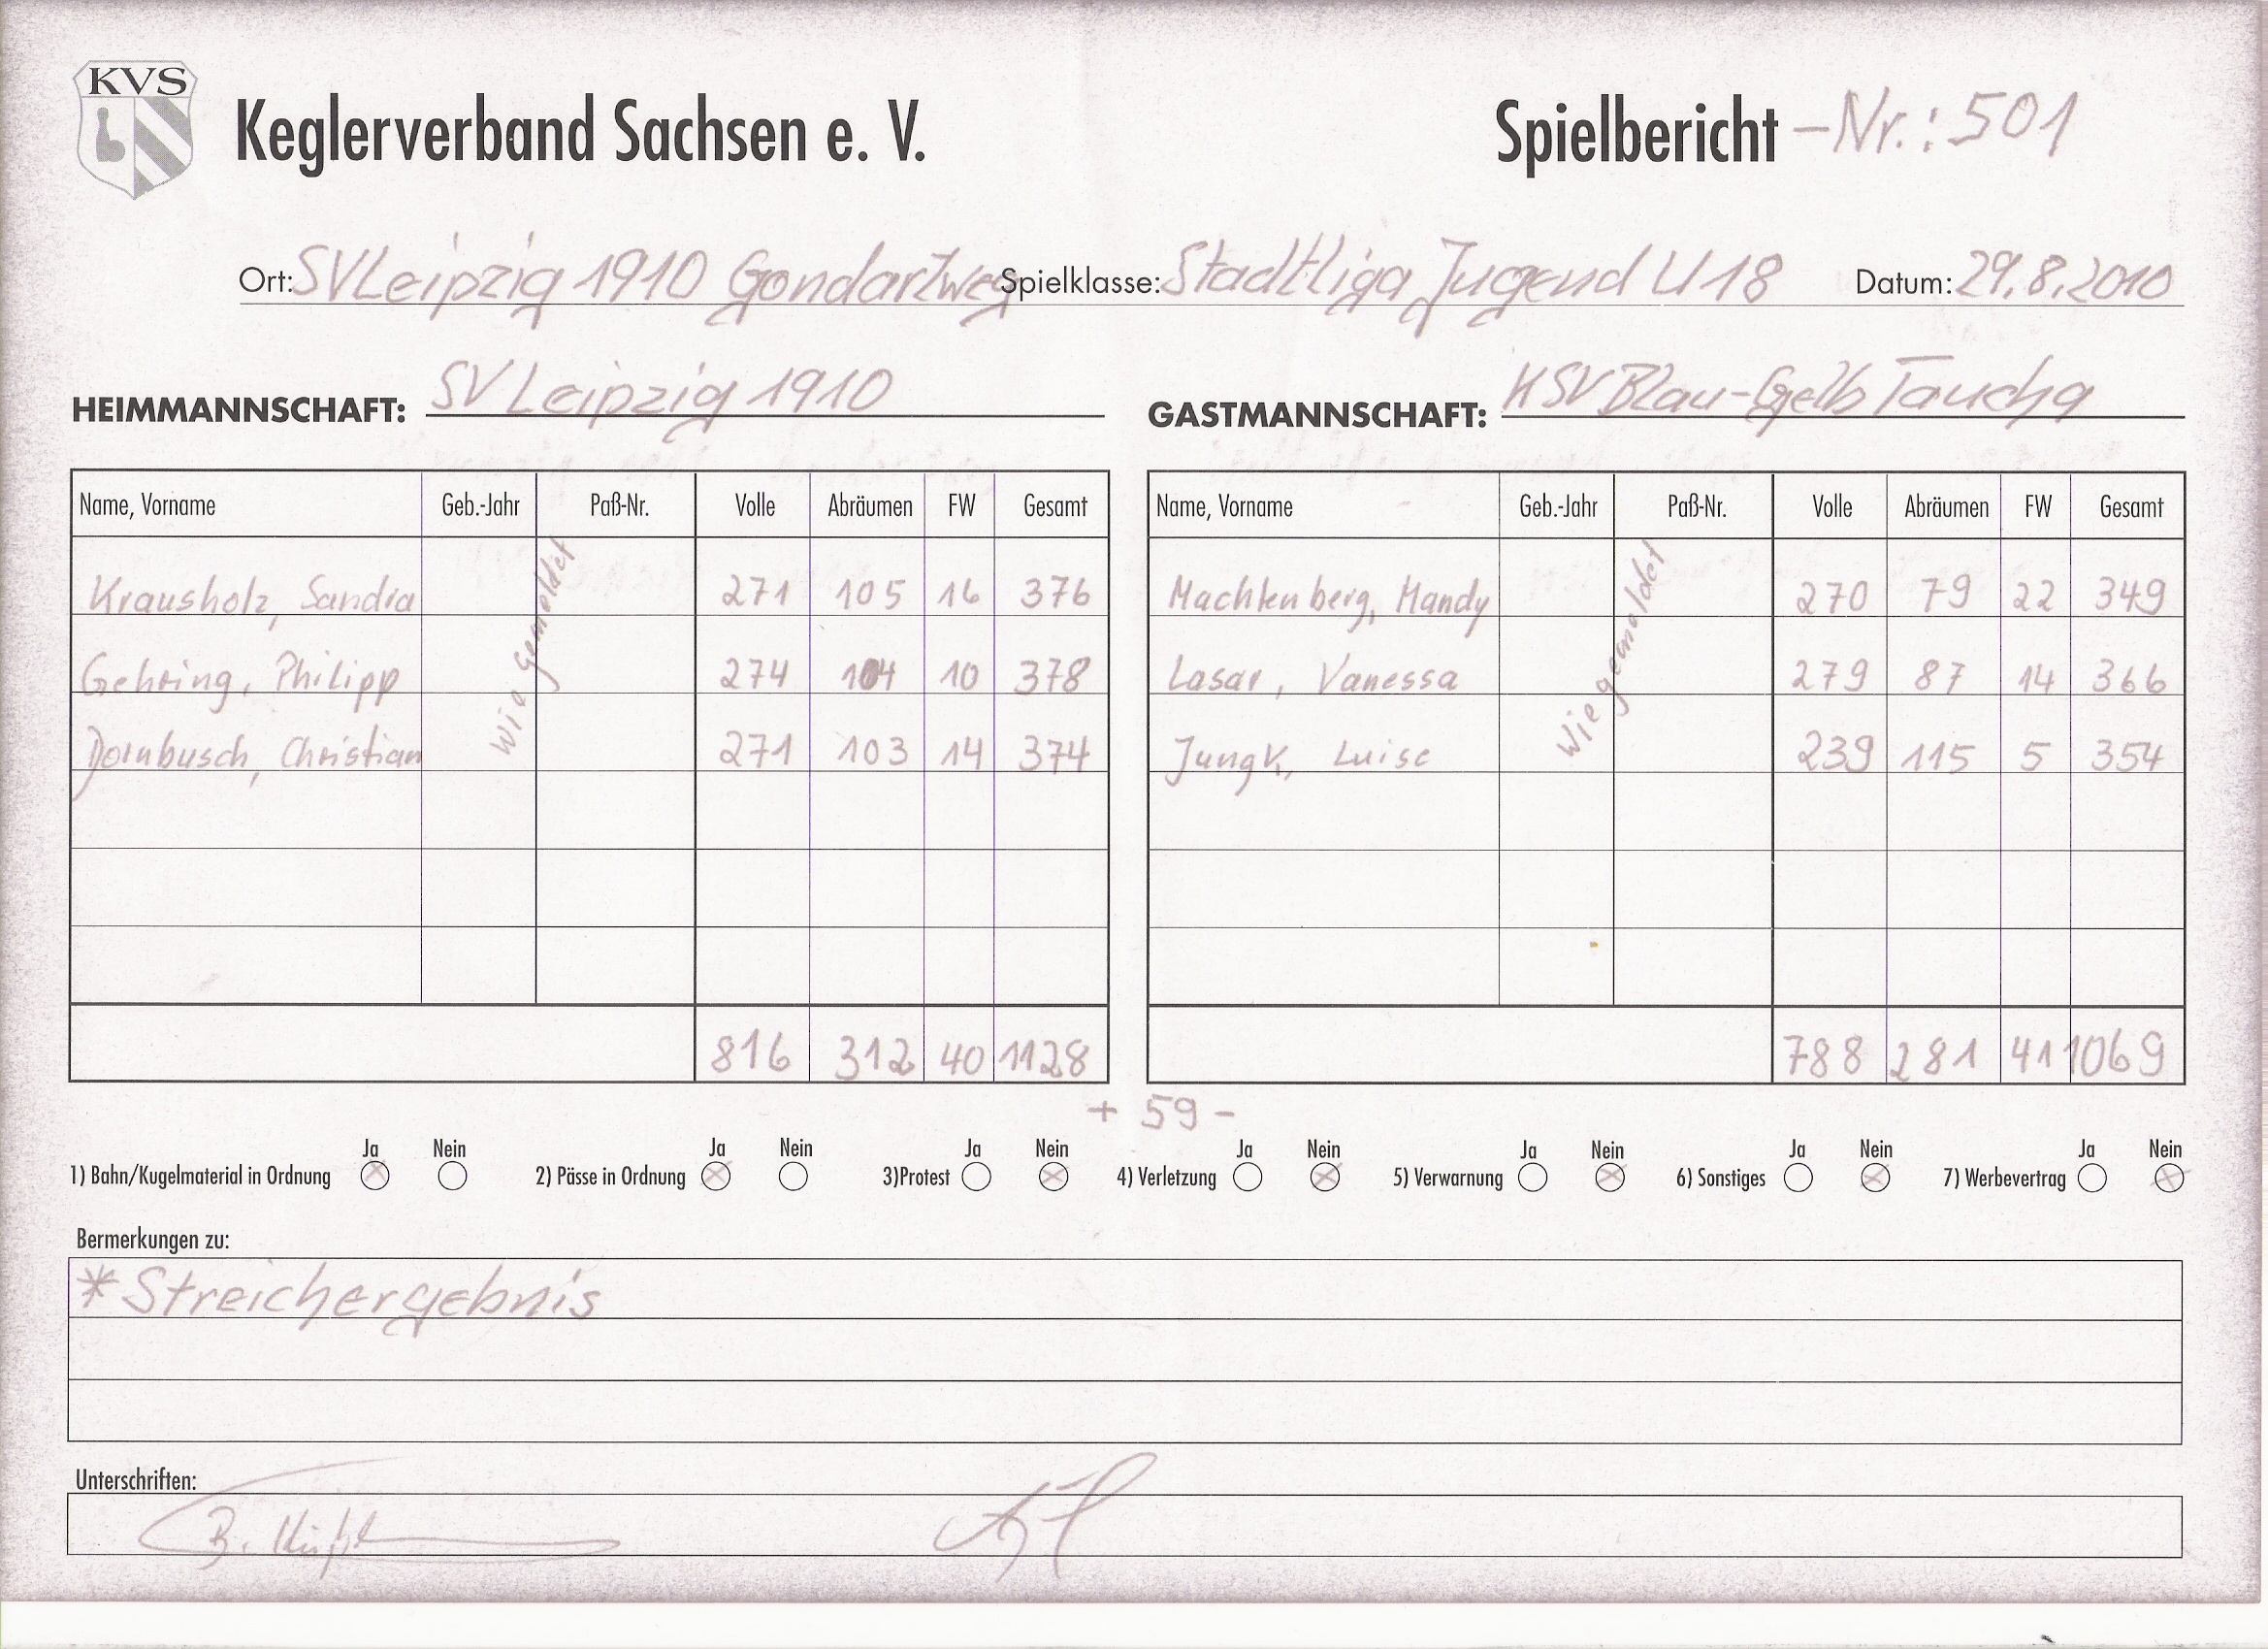 KVS
Keglerverband Sachsen e. V.
Spielbericht -Nr.: 501
Ort: SV Leipzig 1910 Gondartweg Spielklasse: Stadtliga Jugend U 18 Datum: 29.8.2010
HEIMMANNSCHAFT: SV Leipzig 1910
GASTMANNSCHAFT: KSV Blau-Gelb Taucha
Name, Vorname Geb.-Jahr Paß-Nr. Volle Abräumen FW Gesamt
Krausholz, Sandra 271 105 16 376
Gehring, Philipp 274 104 10 378
Dornbusch, Christian 271 103 14 374
wie gemeldet
816 312 40 1128
Name, Vorname Geb.-Jahr Paß-Nr. Volle Abräumen FW Gesamt
Machtenberg, Mandy 270 79 22 349
Lasar, Vanessa 279 87 14 366
Jungk, Luise 239 115 5 354
wie gemeldet
788 281 41 1069
+ 59 -
1) Bahn/Kugelmaterial in Ordnung Ja Nein 2) Pässe in Ordnung Ja Nein 3)Protest Ja Nein 4) Verletzung Ja Nein 5) Verwarnung Ja Nein 6) Sonstiges Ja Nein 7) Werbevertrag Ja Nein
Bermerkungen zu:
* Streichergebnis
Unterschriften: